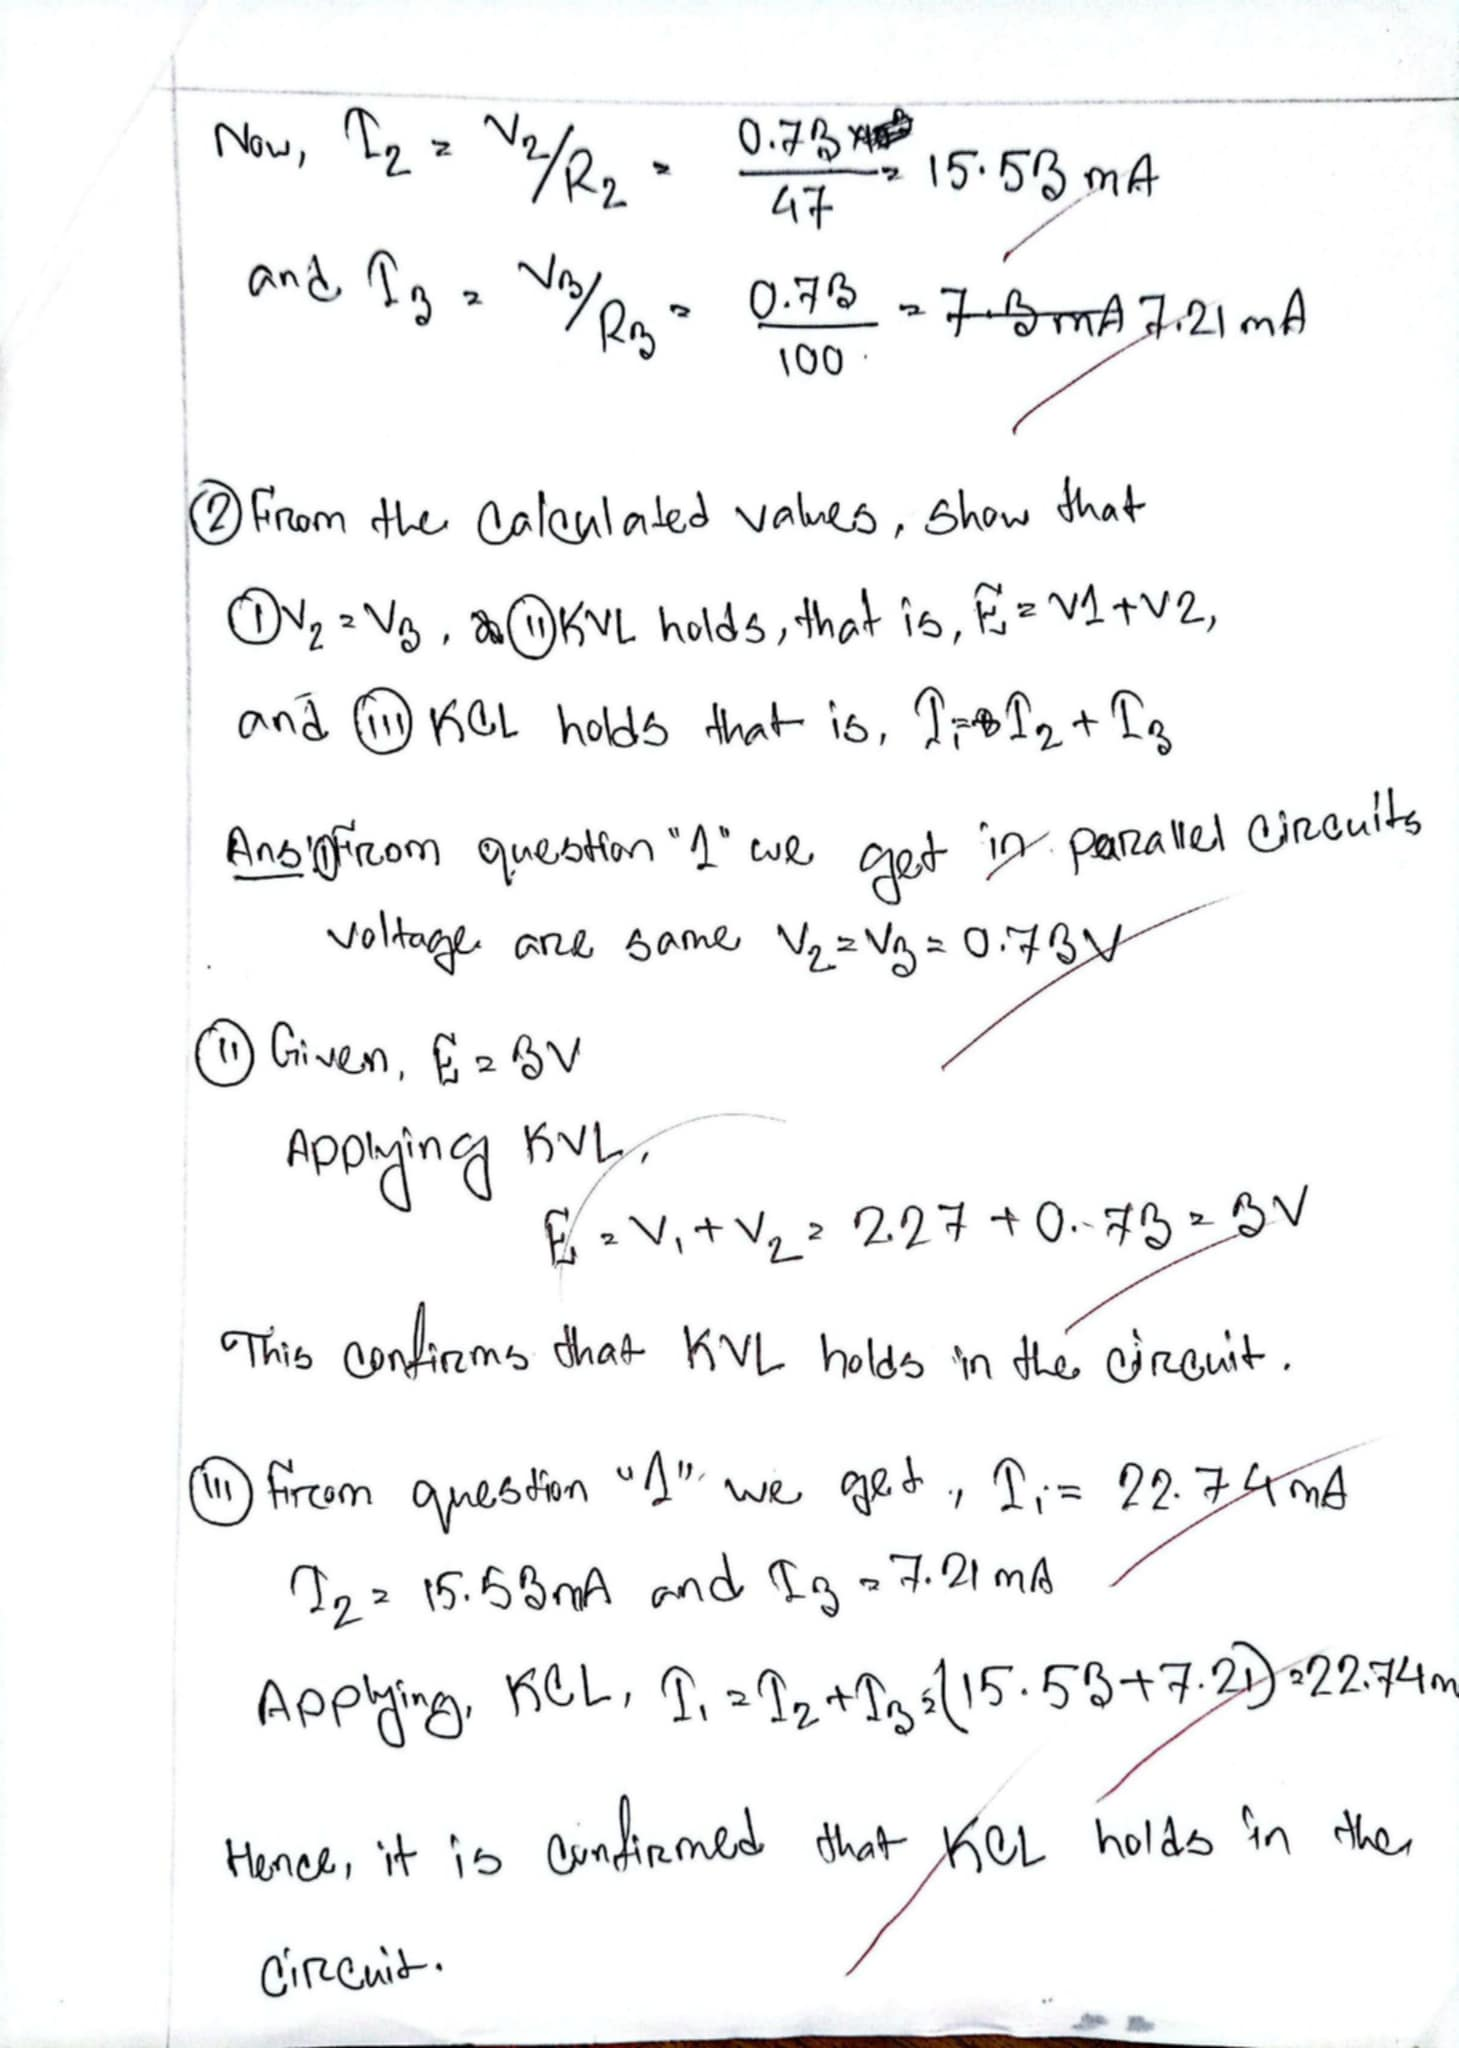 Now, I₂ = V₂/R₂ = 0.73 / 47 = 15.53 mA
and I₃ = V₃/R₃ = 0.73 / 100 = 7.3 mA 7.21 mA
② From the Calculated values, show that
① V₂ = V₃, ⑪ KVL holds, that is, E = V1 + V2,
and ⑪⑪ KCL holds that is, I₁ = I₂ + I₃
Ans: ① From question "1" we get in parallel circuits
voltage are same V₂ = V₃ = 0.73V
⑪ Given, E = 3V
Applying KVL,
E = V₁ + V₂ = 2.27 + 0.73 = 3V
This confirms that KVL holds in the circuit.
(iii) From question "1" we get, I₁ = 22.74 mA
I₂ = 15.53mA and I₃ = 7.21 mA
Applying, KCL, I₁ = I₂ + I₃ = (15.53 + 7.21) = 22.74m
Hence, it is confirmed that KCL holds in the
circuit.